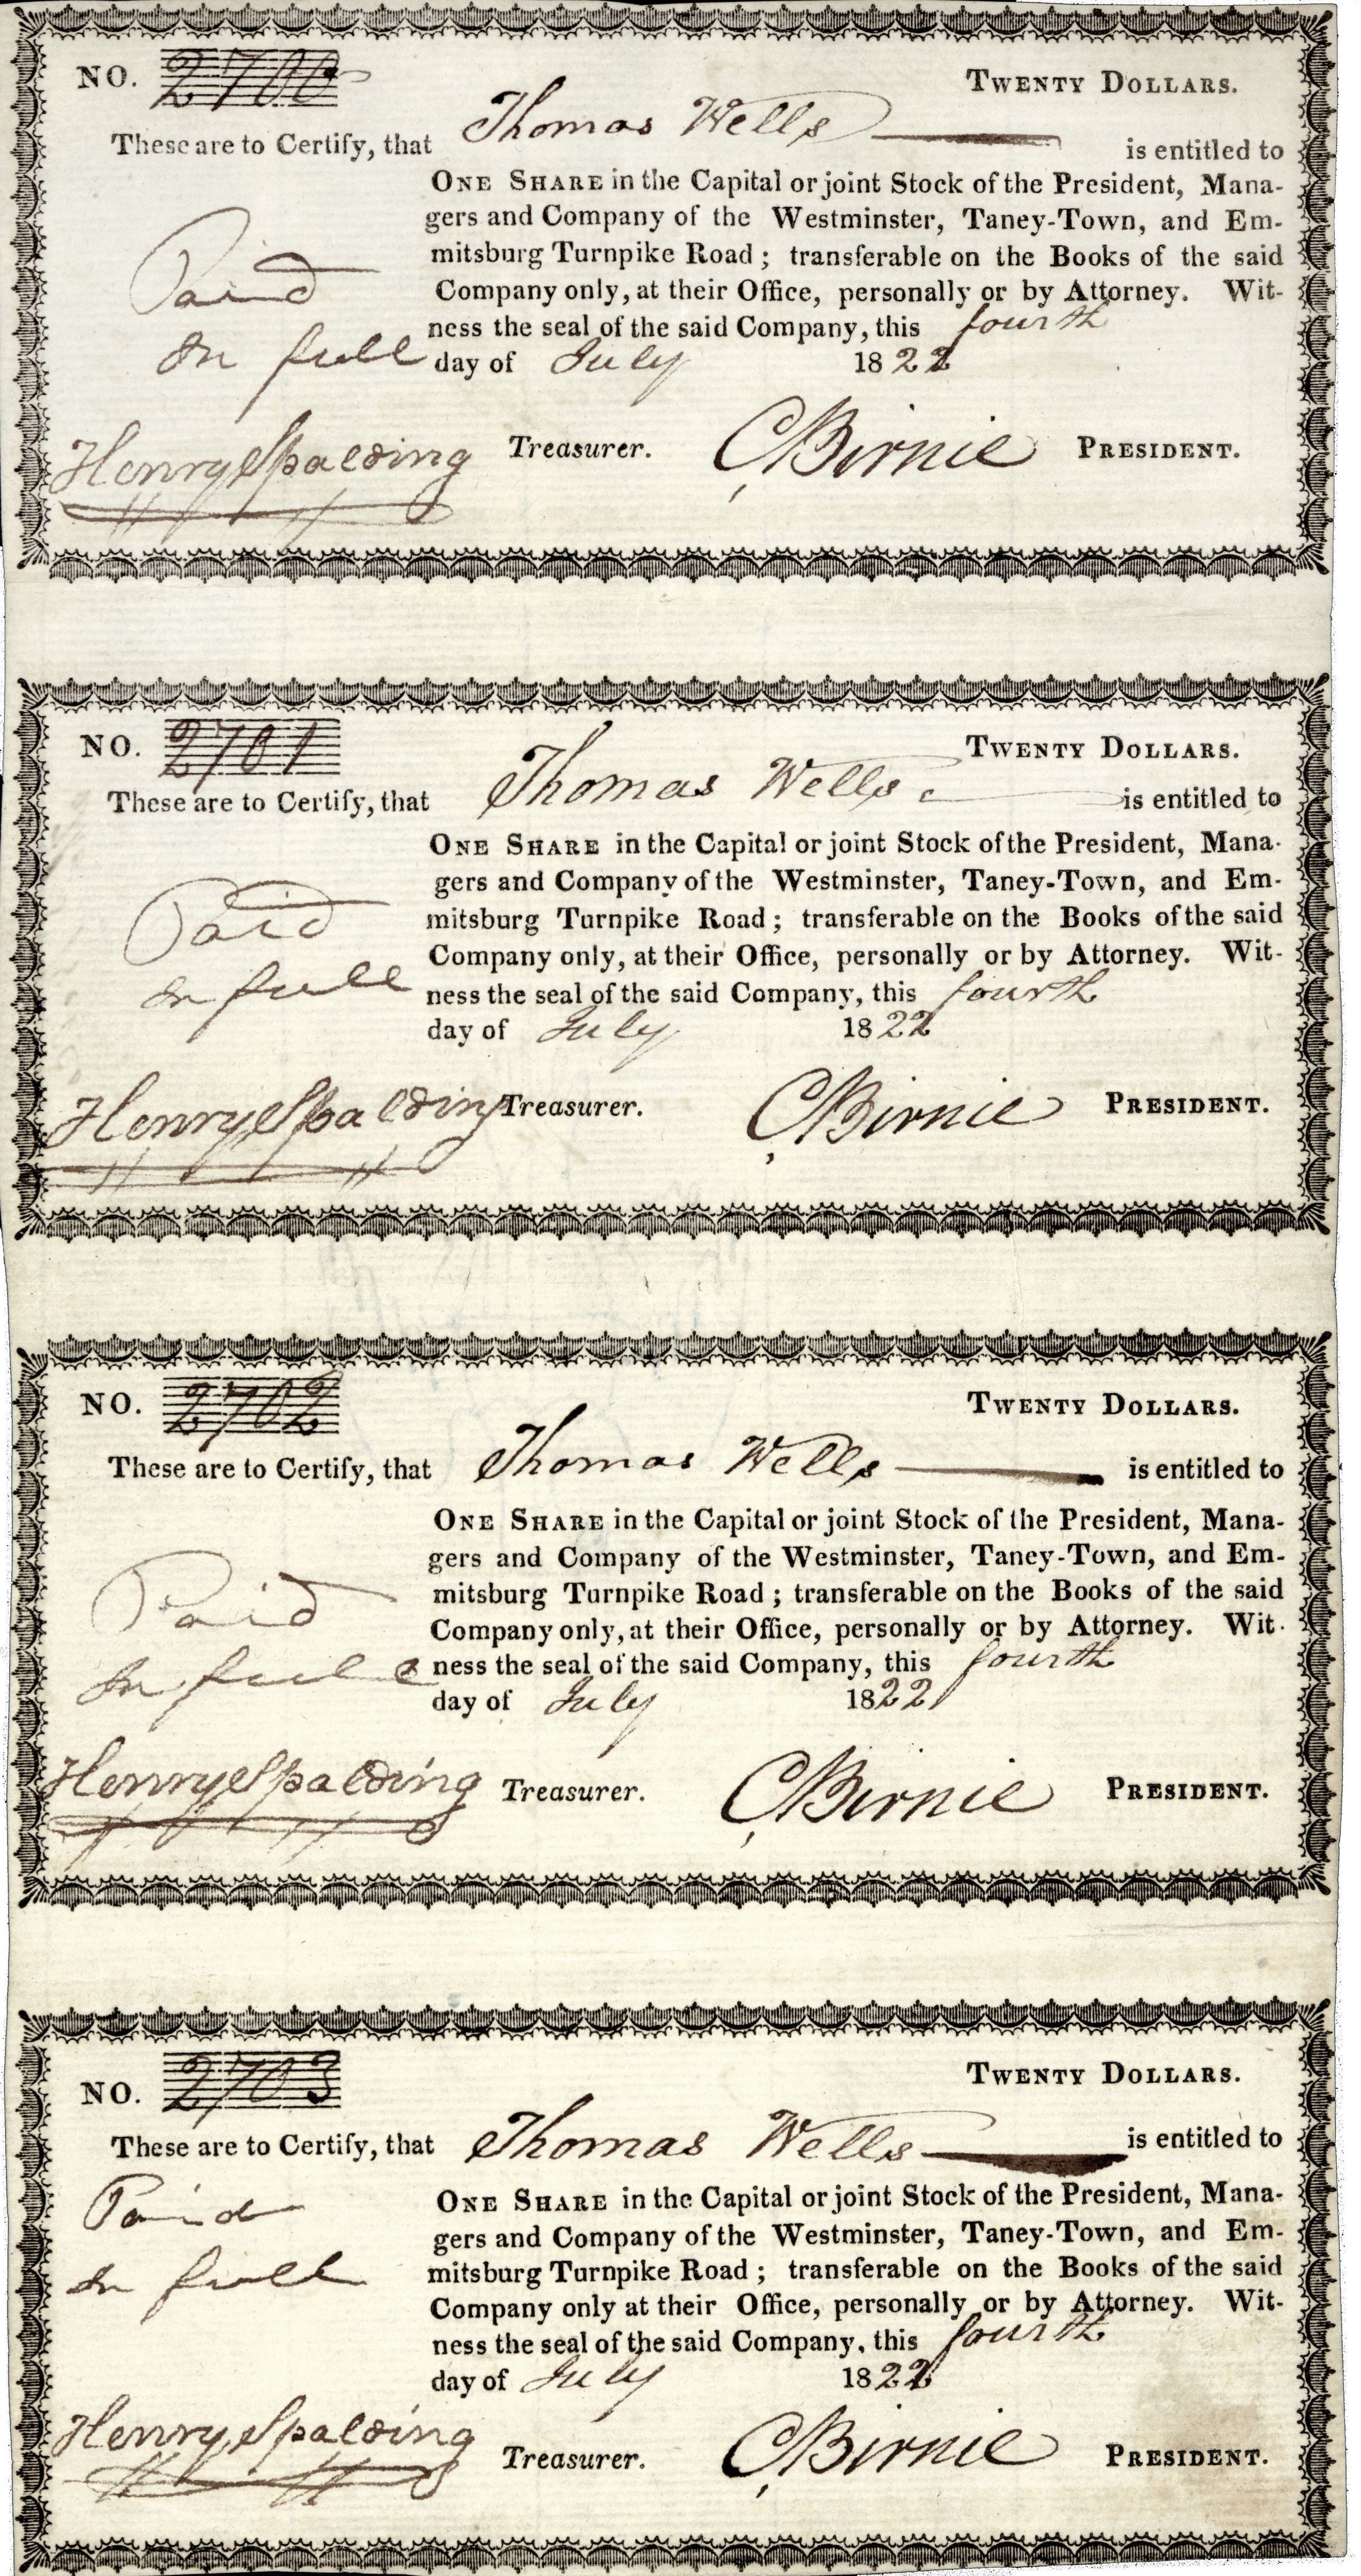 NO. 2700 TWENTY DOLLARS.
These are to Certify, that Thomas Wells is entitled to
ONE SHARE in the Capital or joint Stock of the President, Mana-
gers and Company of the Westminster, Taney-Town, and Em-
mitsburg Turnpike Road; transferable on the Books of the said
Company only, at their Office, personally or by Attorney. Wit-
ness the seal of the said Company, this fourth
day of July 1822
Paid
In full
Henry Spalding Treasurer. C Birnie PRESIDENT.
NO. 2701 TWENTY DOLLARS.
These are to Certify, that Thomas Wells is entitled to
ONE SHARE in the Capital or joint Stock of the President, Mana-
gers and Company of the Westminster, Taney-Town, and Em-
mitsburg Turnpike Road; transferable on the Books of the said
Company only, at their Office, personally or by Attorney. Wit-
ness the seal of the said Company, this fourth
day of July 1822
Paid
In full
Henry Spalding Treasurer. C Birnie PRESIDENT.
NO. 2702 TWENTY DOLLARS.
These are to Certify, that Thomas Wells is entitled to
ONE SHARE in the Capital or joint Stock of the President, Mana-
gers and Company of the Westminster, Taney-Town, and Em-
mitsburg Turnpike Road; transferable on the Books of the said
Company only, at their Office, personally or by Attorney. Wit-
ness the seal of the said Company, this fourth
day of July 1822
Paid
In full
Henry Spalding Treasurer. C Birnie PRESIDENT.
NO. 2703 TWENTY DOLLARS.
These are to Certify, that Thomas Wells is entitled to
ONE SHARE in the Capital or joint Stock of the President, Mana-
gers and Company of the Westminster, Taney-Town, and Em-
mitsburg Turnpike Road; transferable on the Books of the said
Company only at their Office, personally or by Attorney. Wit-
ness the seal of the said Company, this fourth
day of July 1822
Paid
In full
Henry Spalding Treasurer. C Birnie PRESIDENT.